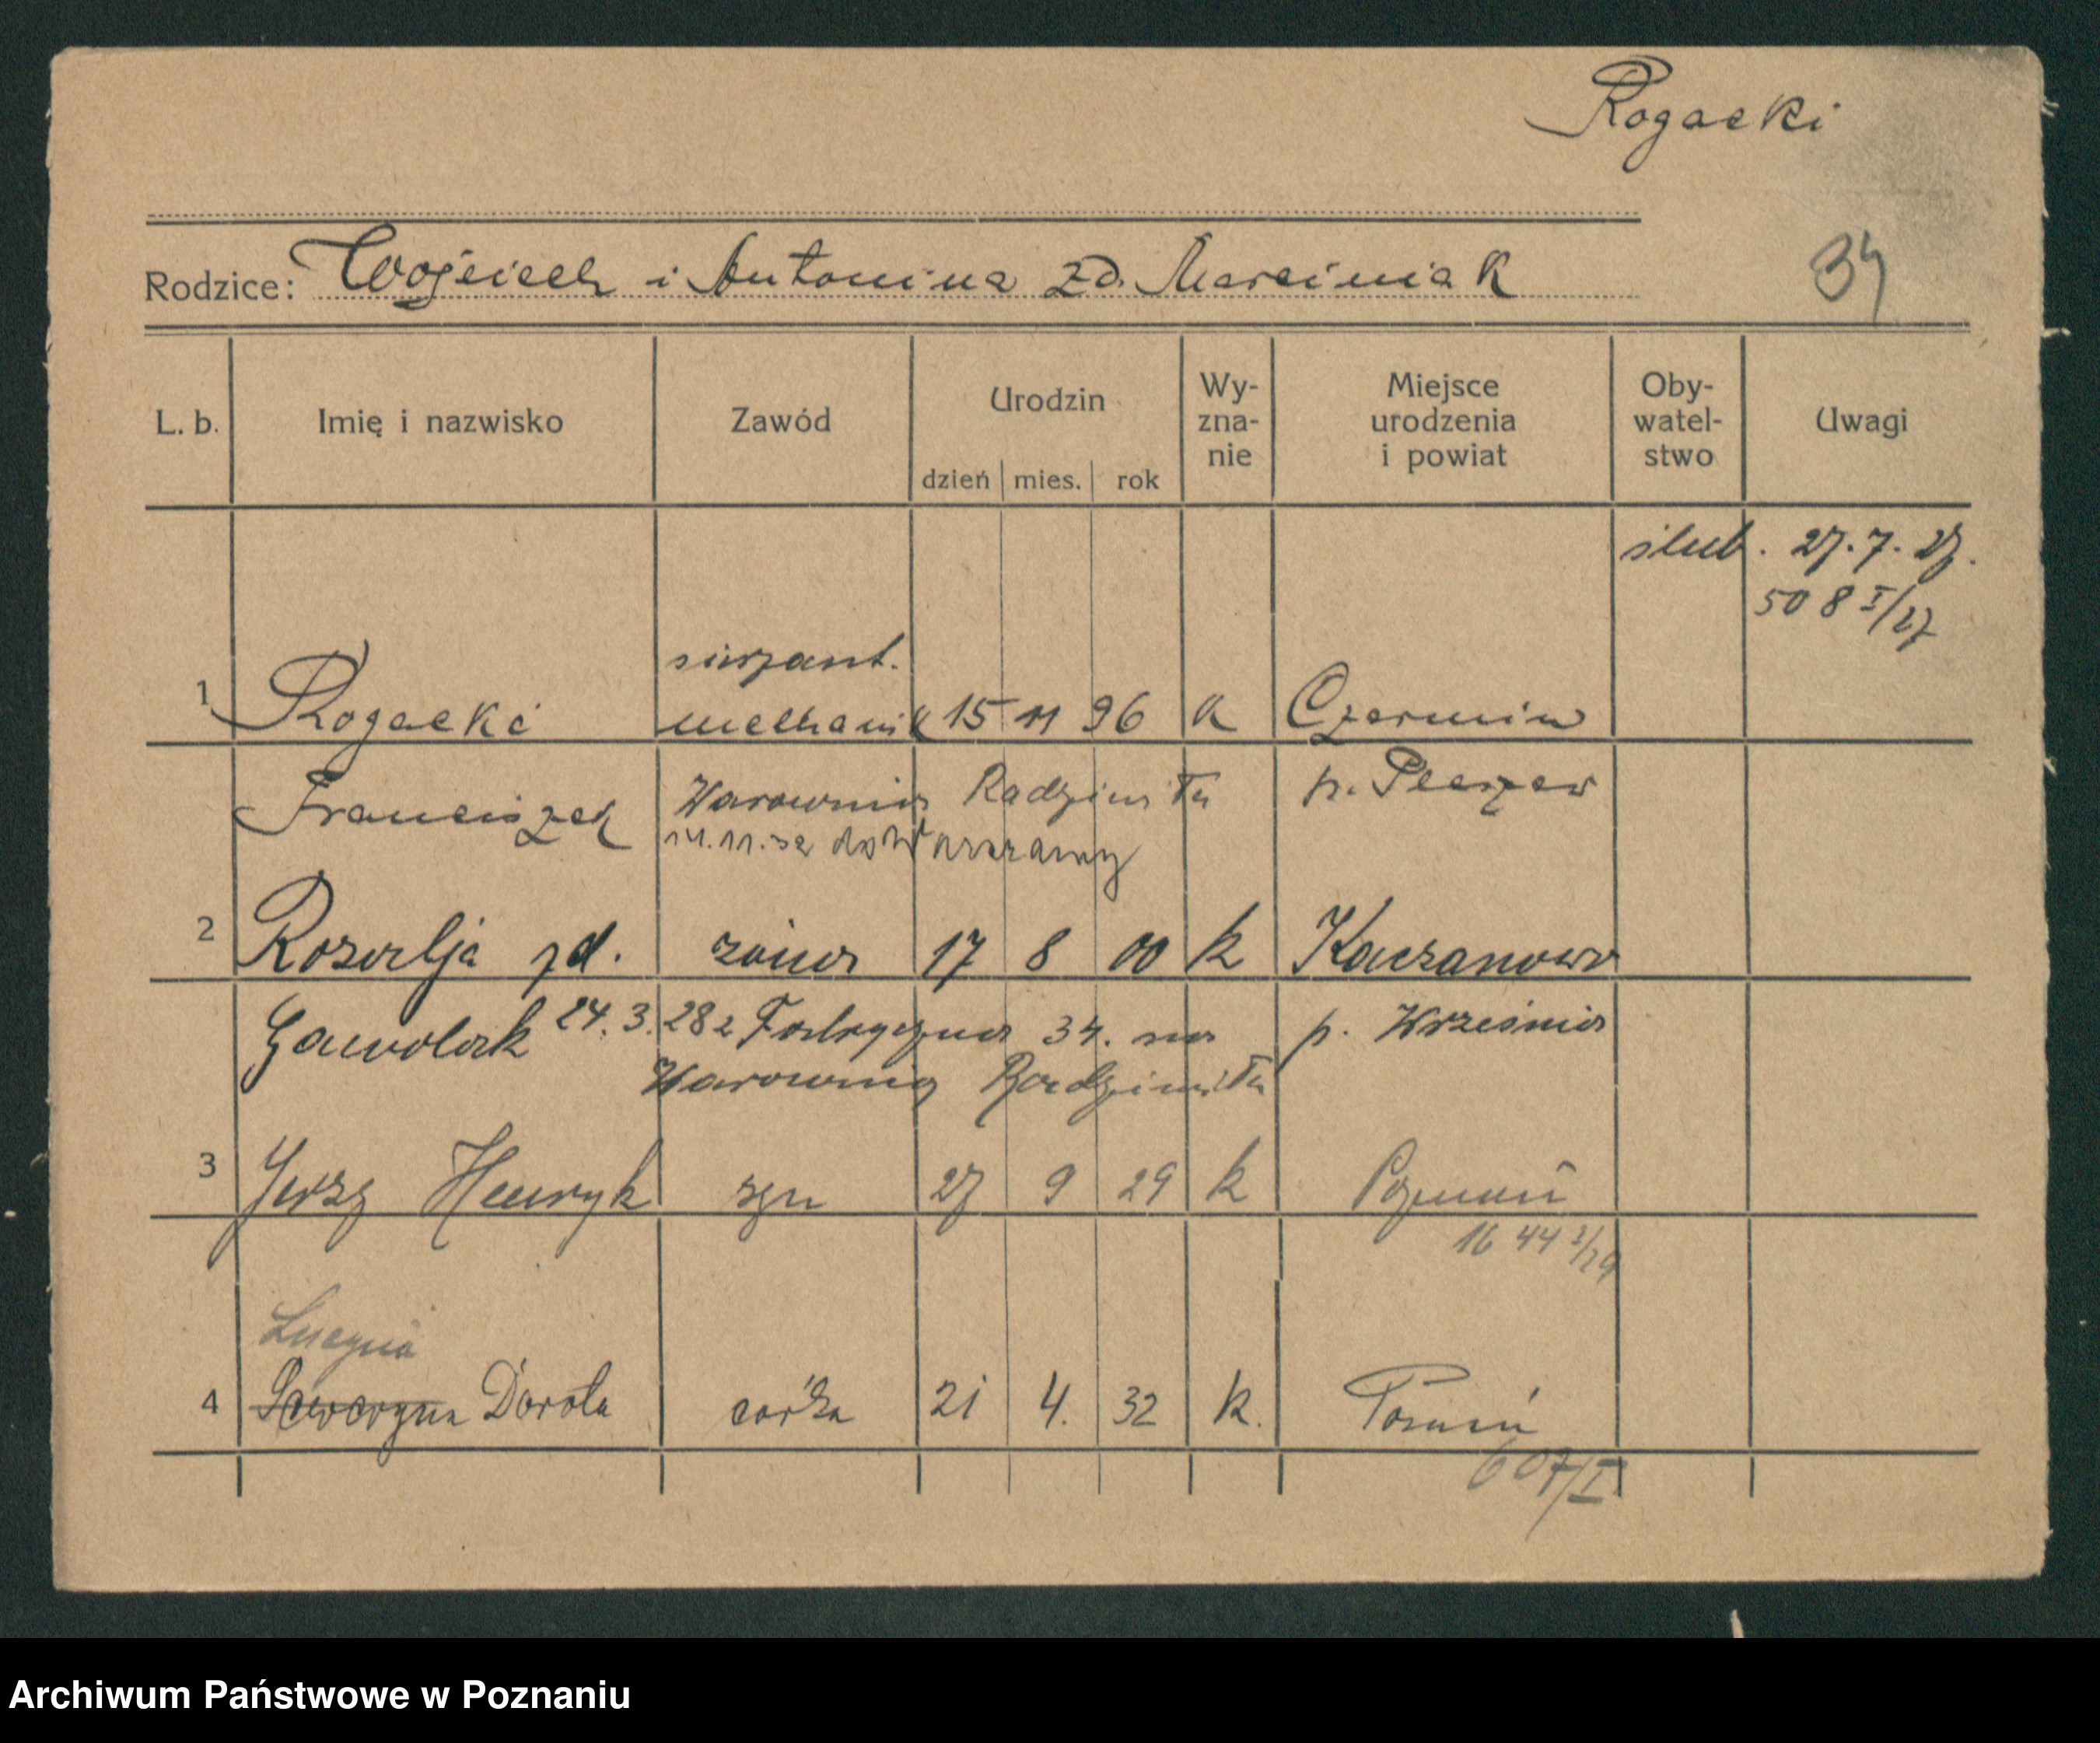 Rogacki
Rodzice: Wojciech i Antonina zd. Marciniak
34
L. b. Imię i nazwisko Zawód Urodzin dzień mies. rok Wy-zna-nie Miejsce urodzenia i powiat Oby-watel-stwo Uwagi
ślub. 27.7.27.
508 I/27
sierżant.
1 Rogacki mechanik 15 11 96 k Czermin
Franciszek Warownia Radziwiłła p. Pleszew
14.11.32 do Warszawy
2 Rozalja zd. żona 17 8 00 k Kaczanowo
Gawolak 24.3.28 z Fabryczna 34. na p. Września
Warownią Radziwiłła
3 Jerzy Henryk syn 27 9 29 k Poznań
1644 I/29
Lucyna
4 Seweryna Dorota córka 21 4. 32 k. Poznań
607/I
Archiwum Państwowe w Poznaniu